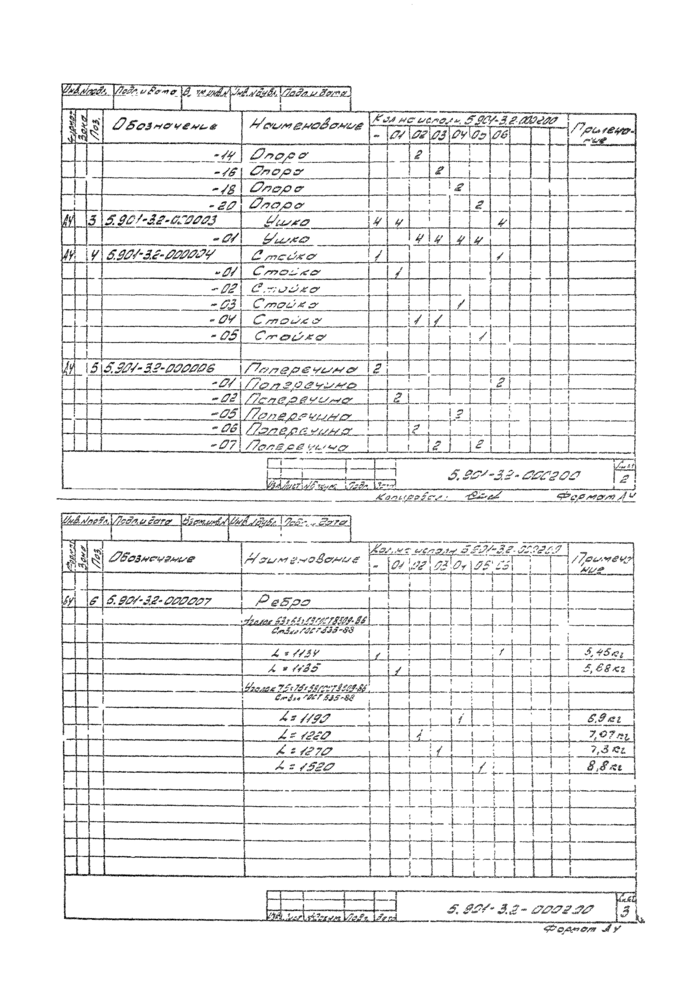 Инв.№подл. Подп. и дата Инв.№дубл. Подп. и дата
Формат Зона Поз. Обозначение Наименование Кол. на исполн. 5.901-3.2-000200 Примеча-ние
- 01 02 03 04 05 06
-14 Опора 2
-16 Опора 2
-18 Опора 2
-20 Опора 2
А4 3 5.901-3.2-000003 Ушко 4 4 4
-01 Ушко 4 4 4 4
А4 4 5.901-3.2-000004 Стойка 1 1
-01 Стойка 1
-02 Стойка
-03 Стойка 1
-04 Стойка 1 1
-05 Стойка 1
А4 5 5.901-3.2-000006 Поперечина 2
-01 Поперечина 2
-02 Поперечина 2
-05 Поперечина 2
-06 Поперечина 2
-07 Поперечина 2 2
5.901-3.2-000200 Лист 2
Изм. Лист № докум. Подп. Дата
Копировал: Формат А4
Инв.№подл. Подп. и дата Взам.инв.№ Инв.№дубл. Подп. и дата
Формат Зона Поз. Обозначение Наименование Кол. на исполн. 5.901-3.2-000200 Примеча-ние
- 01 02 03 04 05 06
БЧ 6 5.901-3.2-000007 Ребро
L = 1134 1 1 5,45кг
L = 1185 1 5,68кг
L = 1190 1 6,9кг
L = 1220 1 7,07кг
L = 1270 1 7,3кг
L = 1520 1 8,8кг
5.901-3.2-000200 Лист 3
Формат А4